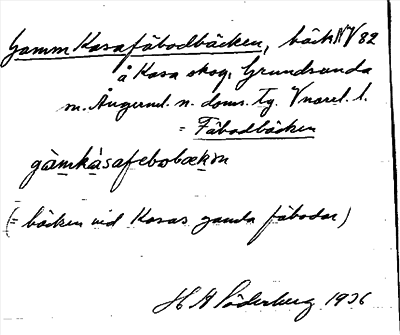 Gamm Kasafäbodbäcken, bäck NV 82
å Kasa skog, Grundsunda
sn. Ångerml. n. doms. tg. Vnorrl. l.
= Fäbodbäcken
gàmkàsafebobækən
(= bäcken vid Kasas gamla fäbodar)
H A Söderberg 1936